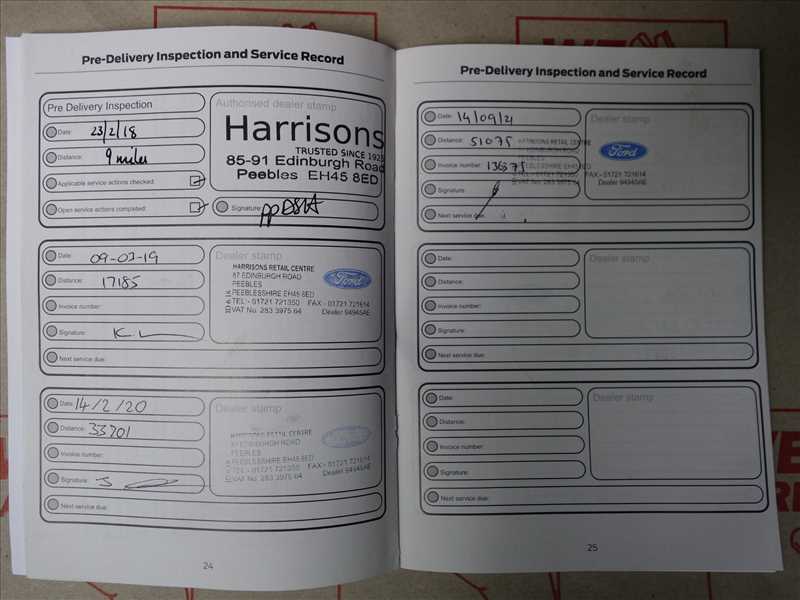 Pre-Delivery Inspection and Service Record
Pre Delivery Inspection
Date: 23/2/18
Distance: 9 miles
Applicable service actions checked:
Open service actions completed:
Authorised dealer stamp
Harrisons
TRUSTED SINCE 1925
85-91 Edinburgh Road
Peebles EH45 8ED
Signature:
Date: 09-03-19
Distance: 17185
Invoice number:
Signature:
Next service due:
Dealer stamp
HARRISONS RETAIL CENTRE
87 EDINBURGH ROAD
PEEBLES
PEEBLESSHIRE EH45 8ED
TEL - 01721 721350 FAX - 01721 721614
VAT No. 283 3975 64 Dealer 94945AE
Ford
Date: 14/2/20
Distance: 33701
Invoice number:
Signature:
Next service due:
Dealer stamp
HARRISONS RETAIL CENTRE
87 EDINBURGH ROAD
PEEBLES
PEEBLESSHIRE EH45 8ED
TEL - 01721 721350 FAX - 01721 721614
VAT No. 283 3975 64 Dealer 94945AE
24
Pre-Delivery Inspection and Service Record
Date: 14/09/21
Distance: 51075
Invoice number:
Signature:
Next service due:
Dealer stamp
HARRISONS RETAIL CENTRE
PEEBLES
PEEBLESSHIRE EH45 8ED
TEL - 01721 721350 FAX - 01721 721614
Dealer 94945AE
Ford
Date:
Distance:
Invoice number:
Signature:
Next service due:
Dealer stamp
Date:
Distance:
Invoice number:
Signature:
Next service due:
Dealer stamp
25